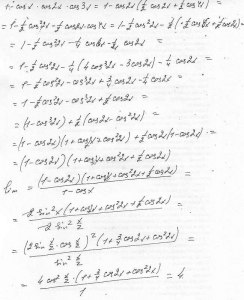 1 - cos x · cos 2x · cos 3x = 1 - cos 2x (½ cos 2x + ½ cos 4x) =
= 1 - ½ cos² 2x - ½ cos 2x cos 4x = 1 - ½ cos² 2x - ½ (½ cos 6x + ½ cos 2x) =
= 1 - ½ cos² 2x - ¼ cos 6x - ¼ cos 2x
= 1 - ½ cos² 2x - ¼ (4 cos³ 2x - 3 cos 2x) - ¼ cos 2x
= 1 - ½ cos² 2x - cos³ 2x + ¾ cos 2x - ¼ cos 2x
= 1 - ½ cos² 2x - cos³ 2x + ½ cos 2x
= (1 - cos³ 2x) + ½ (cos 2x - cos² 2x) =
= (1 - cos 2x)(1 + cos 2x + cos² 2x) + ½ cos 2x (1 - cos 2x) =
= (1 - cos 2x)(1 + cos 2x + cos² 2x + ½ cos 2x)
lim = (1 - cos 2x)(1 + cos 2x + cos² 2x + ½ cos 2x) / 1 - cos x =
= 2 sin² x (1 + cos 2x + cos² 2x + ½ cos 2x) / 2 sin² x/2 =
= (2 sin x/2 · cos x/2)² (1 + 3/2 cos 2x + cos² 2x) / sin² x/2 =
= 4 cos² x/2 · (1 + 3/2 cos 2x + cos² 2x) / 1 = 4